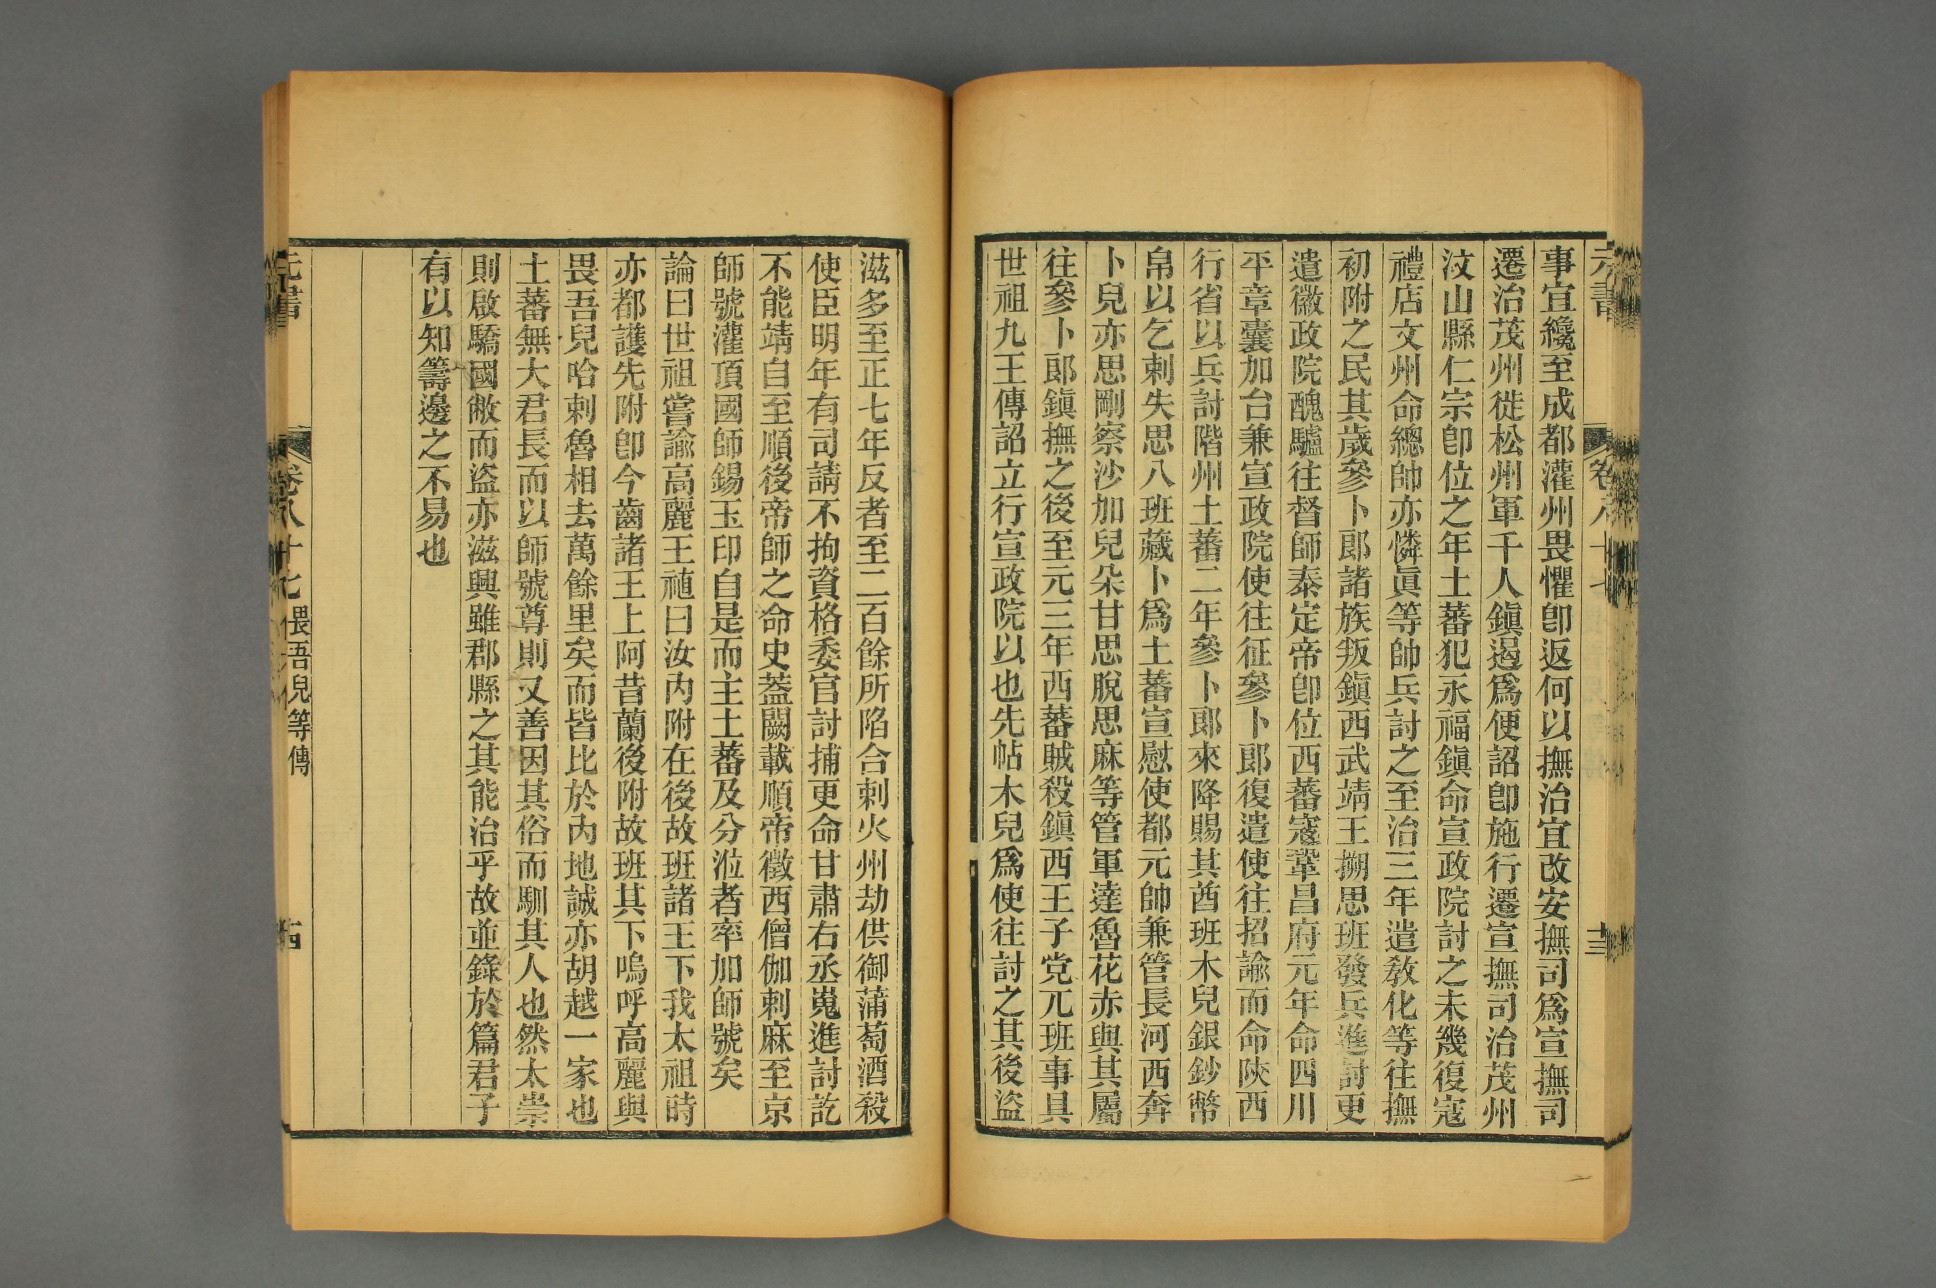 元書
卷八十七
十三
事宜纔至成都灌州畏懼卽返何以撫治宜改安撫司爲宣撫司
遷治茂州徙松州軍千人鎭遏爲便詔卽施行遷宣撫司治茂州
汶山縣仁宗卽位之年土蕃犯永福鎭命宣政院討之未幾復寇
禮店文州命總帥亦憐眞等帥兵討之至治三年遣敎化等往撫
初附之民其歲參卜郎諸族叛鎭西武靖王搠思班發兵進討更
遣徽政院醜驢往督師泰定帝卽位西蕃寇鞏昌府元年命四川
平章囊加台兼宣政院使往征參卜郎復遣使往招諭而命陝西
行省以兵討階州土蕃二年參卜郎來降賜其酋班木兒銀鈔幣
帛以乞剌失思八班藏卜爲土蕃宣慰使都元帥兼管長河西奔
卜兒亦思剛察沙加兒朵甘思脫思麻等管軍達魯花赤與其屬
往參卜郎鎭撫之後至元三年西蕃賊殺鎭西王子党兀班事具
世祖九王傳詔立行宣政院以也先帖木兒爲使往討之其後盜
滋多至正七年反者至二百餘所陷合剌火州劫供御蒲萄酒殺
使臣明年有司請不拘資格委官討捕更命甘肅右丞嵬進討訖
不能靖自至順後帝師之命史蓋闕載順帝徵西僧伽剌麻至京
師號灌頂國師錫玉印自是而主土蕃及分涖者率加師號矣
論曰世祖嘗諭高麗王禃曰汝內附在後故班諸王下我太祖時
亦都護先附卽令齒諸王上阿昔蘭後附故班其下嗚呼高麗與
畏吾兒哈剌魯相去萬餘里矣而皆比於內地誠亦胡越一家也
土蕃無大君長而以師號尊則又善因其俗而馴其人也然太崇
則啟驕國敝而盜亦滋興雖郡縣之其能治乎故並錄於篇君子
有以知籌邊之不易也
元書
卷八十七 畏吾兒等傳
十四